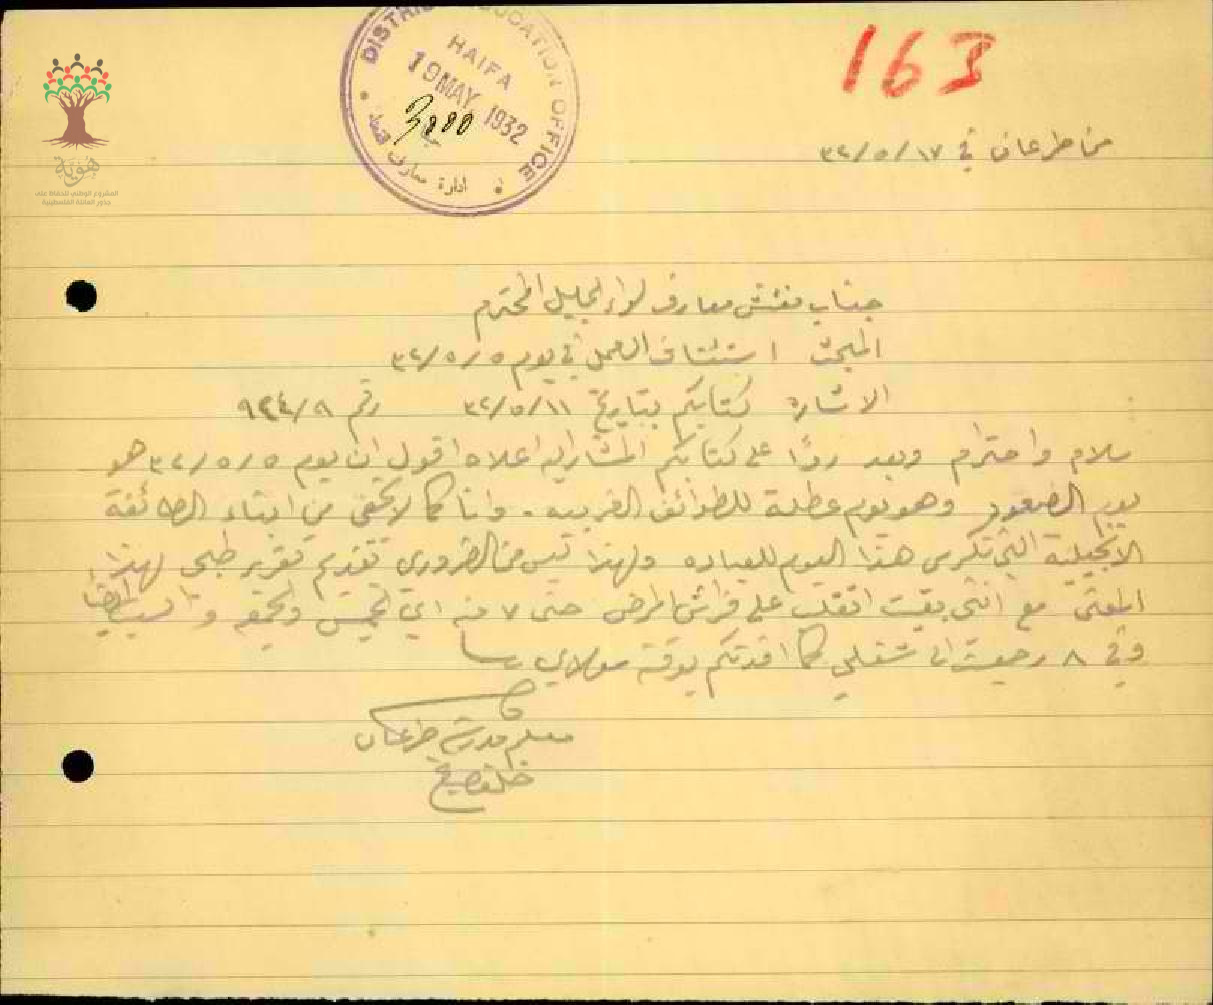 163
DISTRICT EDUCATION OFFICE
HAIFA
19 MAY 1932
3000
ادارة معارف
هُوِيَّة
المشروع الوطني للحفاظ على
جذور العائلة الفلسطينية
من طرعان في ١٧/٥/٣٢
جناب مفتش معارف لواء الجليل المحترم
المبحث استئناف العمل في يوم ٥/٥/٣٢
الاشارة كتابكم بتاريخ ١١/٥/٣٢ رقم ٩٢٤/٨
سلام واحترام وبعد ردًا على كتابكم المشار اليه اعلاه اقول ان يوم ٥/٥/٣٢ هو
يوم الصعود وهو يوم عطلة للطوائف الغربيه. وانا كما لا يخفى من ابناء الطائفة
الانجيلية التي تكرس هذا اليوم للعباده ولهذا ليس من الضروري تقديم تقرير طبي لهذا
المعنى مع انني بقيت اتقلب على فراش المرض حتى ٧ منه اي الخميس والجمعه والسبت ايضا
وفي ٨ رجعت الى شغلي كما افدتكم بوقته مولاي
معلم مدرسة طرعان
خلف